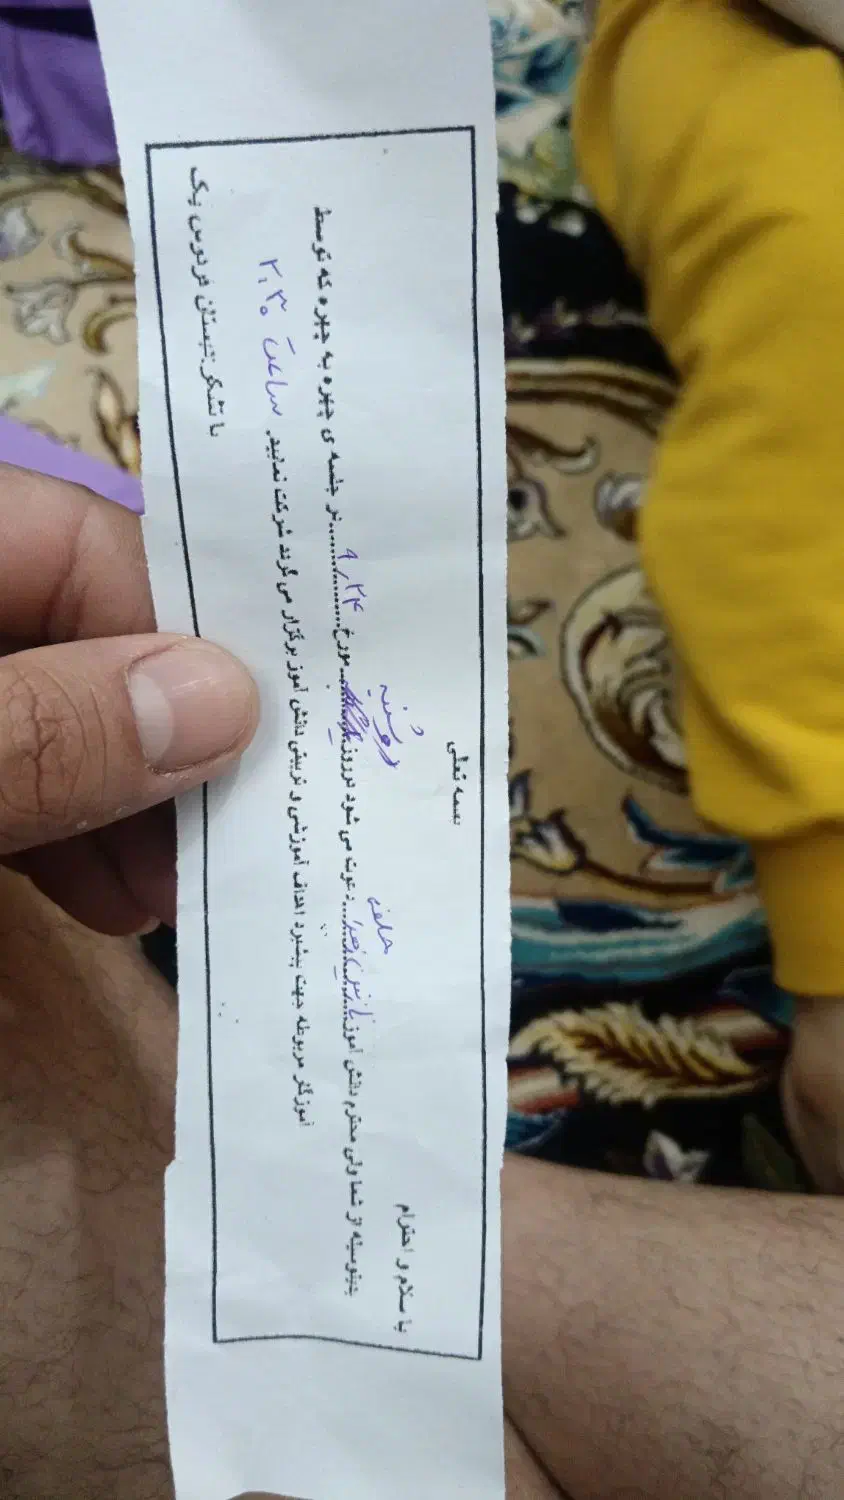 بسمه تعالی
با سلام و احترام
بدینوسیله از شما ولی محترم دانش آموز............ دعوت می شود در روز دوشنبه مورخ ۹٫۲۴ در جلسه ی چهره به چهره که توسط
آموزگار مربوطه جهت پیشبرد اهداف آموزشی و تربیتی دانش آموز برگزار می گردد شرکت نمایید. ساعت ۲٫۳۰
با تشکر دبستان فردوس یک